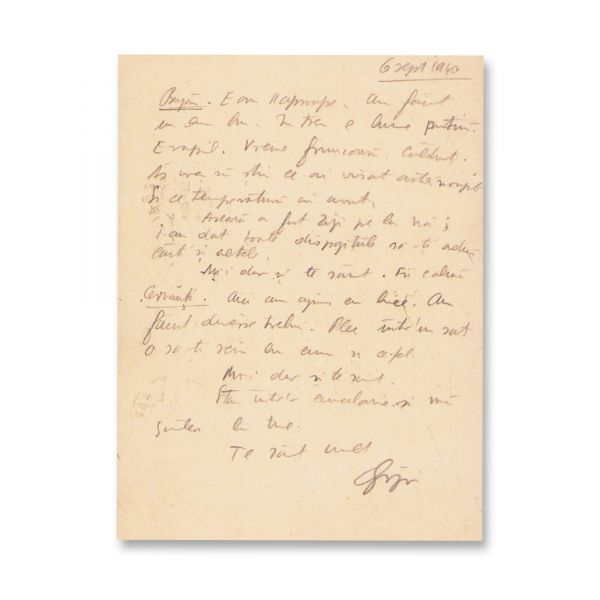 6 sept 1940
Buzău. E ora 11 aproape. Am făcut
un an în tren e lume puțină.
E rapil. Vreme frumoasă. Călduț.
Aș vrea să știu ce ai visat astă noapte
și ce temperatură ai avut.
Aseară a fost Jiji pe la noi;
i-am dat toate dispozițiile să-ți aducă
cărți și altele.
Mi-i dor și te sărut. Fii calmă
Cernăuți. Aici am ajuns cu bine. Am
făcut diverse trebi. Plec într'un sat
o să-ți scriu cum și ce fel.
Mi-i dor și te sărut.
Stau într'o cancelarie și mă
gândesc la tine.
Te sărut mult